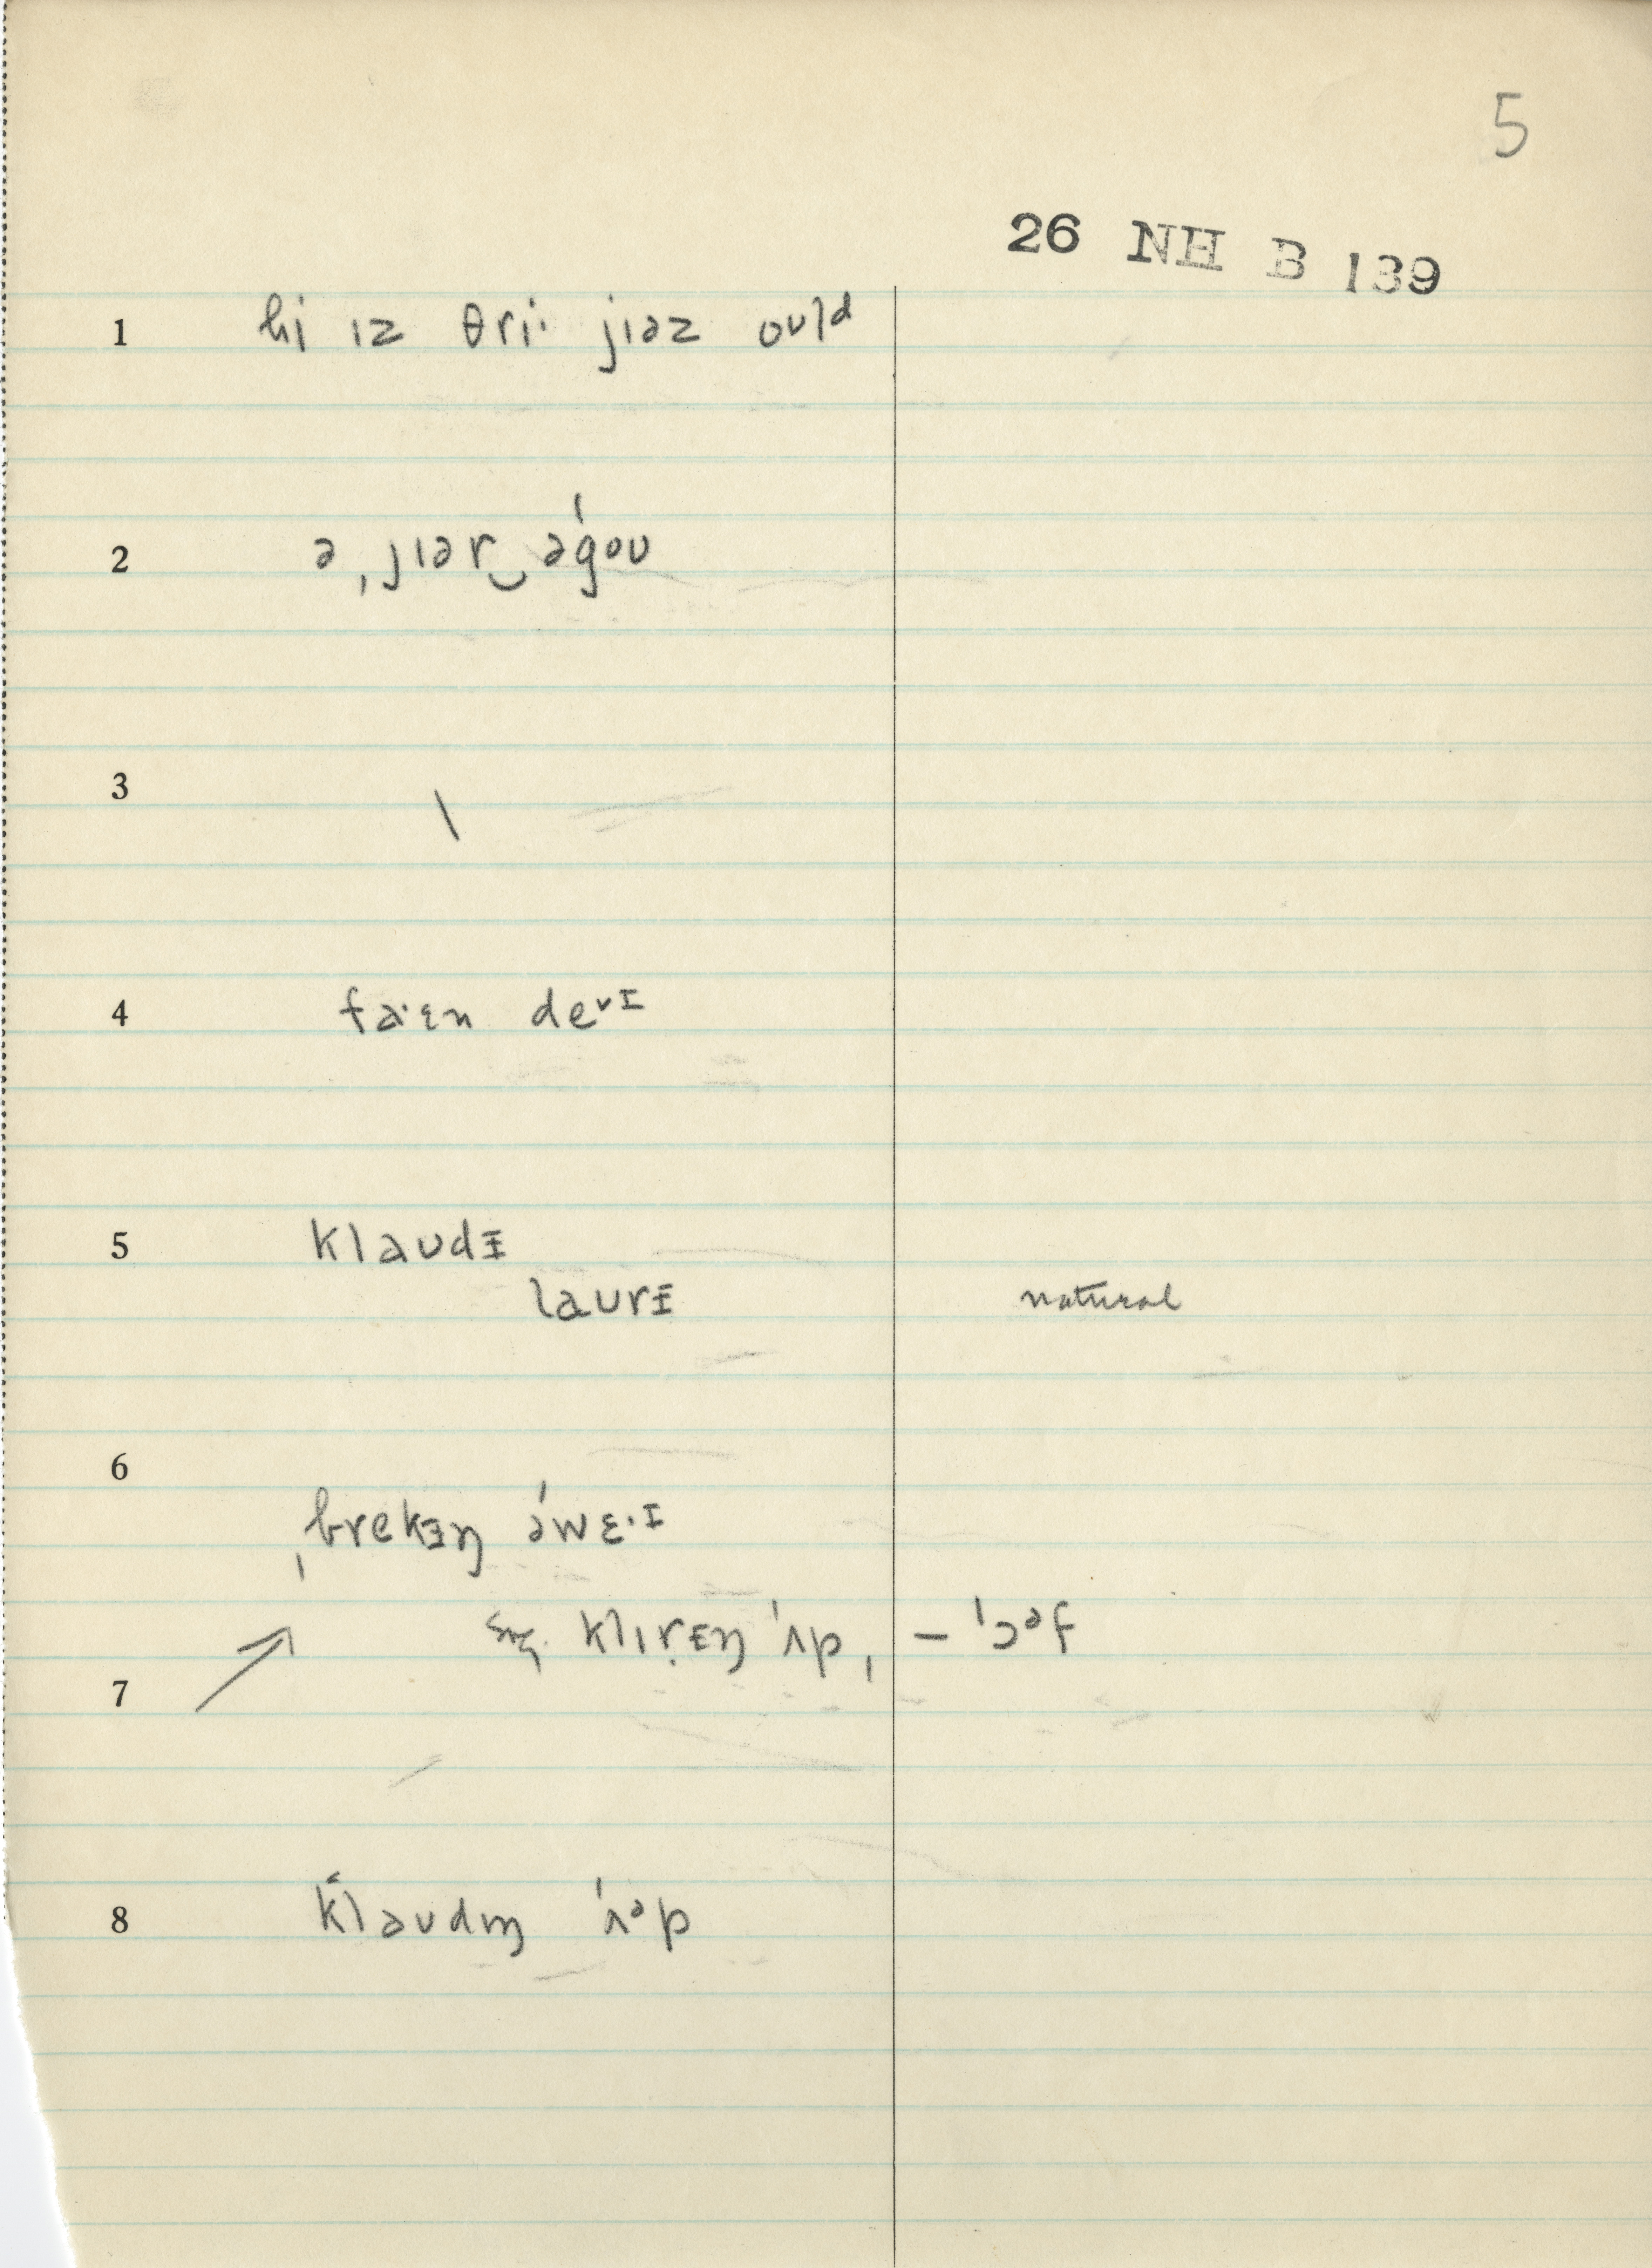 5
26 NH B 139
1 hi ɪz θri· jɪəz oʊld
2 ə ˌjɪər‿əˈgoʊ
3 \
4 faˑɪn deᵛɪ
5 klaʊdɪ
laʊrɪ natural
6 ˌbrekɪŋ əˈwɛˑɪ
klɪrɪŋ ˈʌp, – ˈɔᵊf
7
8 klaʊdɪŋ ˈʌᵊp